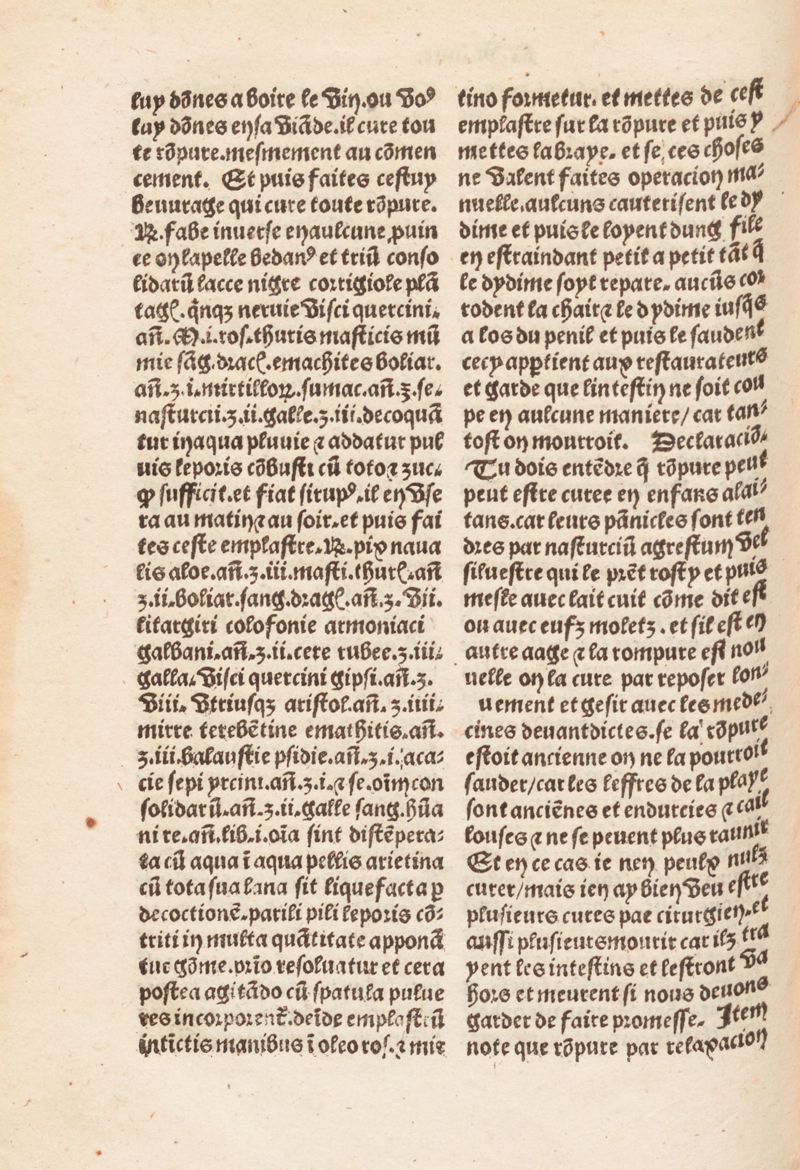 luy dōnes a boire le vin.ou voꝰ
luy dōnes en sa viāde.il cure tou
te rōpure.mesmement au cōmen
cement. Et puis faites cestuy
beuurage qui cure toute rōpure.
℞.fabe inuerse en aulcune ꝓuin
ce on lapelle bedanꝰ et triū conso
lidarū lacce nigre corrigiole plā
tagꝭ.q̄nqꝫ neruie visci quercini.
an̄.M.i.ros.thuris masticis mū
mie sāg.dracꝭ.emachites boliar.
an̄.ʒ.i.mirtilloꝝ.sumac.an̄.ʒ.se.
nasturcii.ʒ.ii.galle.ʒ.iii.decoquā
tur in aqua pluuie ⁊ addatur pul
uis leporis cōbusti cū toto ⁊ zuc.
ꝙ sufficit.et fiat sirupꝰ.il en vse
ra au matin ⁊ au soir.et puis fai
tes ceste emplastre.℞.pix naua
lis aloe.an̄.ʒ.iii.masti.thurꝭ.an̄
ʒ.ii.boliar.sang.dragꝭ.an̄.ʒ.vii.
litargiri colofonie armoniaci
galbani.an̄.ʒ.ii.cere rubee.ʒ.iii.
galla.visci quercini gipsi.an̄.ʒ.
viii. vtriusqꝫ aristol.an̄.ʒ.iiii.
mirre terebētine emathitis.an̄.
ʒ.iii.balaustie psidie.an̄.ʒ.i.aca-
cie sepi yrcini.an̄.ʒ.i.⁊ se.oīm con
solidarū.an̄.ʒ.ii.galle sang.hūa
ni re.an̄.lib.i.oīa sint distēpera-
ta cū aqua ī aqua pellis arietina
cū tota sua lana sit liquefacta ꝑ
decoctionē.parili pili leporis cō-
triti in multa quātitate apponā
tuc gōme.prīo resoluatur et cera
postea agitādo cū spatula pulue
res incorporent̄.deīde emplastrū
intīctis manibus ī oleo ros.⁊ mir
tino formetur. et mettes de cest
emplastre sur la rōpure et puis y
mettes labraye. et se ces choses
ne valent faites operacion ma-
nuelle.aulcuns cauterisent le dy
dime et puis le loyent dung file
en estraindant petit a petit tāt q̄
le dydime soyt repare. aucūs cor
rodent la chair ⁊ le dydime iusq̄s
a los du penil et puis le saudent
cecy apꝑtient aux restaurateurs
et garde que lintestin ne soit cou
pe en aulcune maniere/ car tan-
tost on mourroit. Declaraciō.
Tu dois entēdre q̄ rōpure peut
peut estre curee en enfans alai-
tans.car leurs pānicles sont ten
dres par nasturciū agrestum vel
siluestre qui le prēt rosty et puis
mesle auec lait cuit cōme dit est
ou auec eufz moletz . et sil est en
autre aage ⁊ la rompure est nou
uelle on la cure par reposer lon-
uement et gesir auec les mede-
cines deuantdictes.se la rōpure
estoit ancienne on ne la pourroit
sauder/car les leffres de la playe
sont anciēnes et endurcies ⁊ cail
louses ⁊ ne se peuent plus raunir
Et en ce cas ie nen peulx nulz
curer/mais ien ay bien veu estre
plusieurs cures pae cirurgien.et
aussi plusieurs mourir car ilz tra
yent les intestins et lestront va
hors et meurent si nous deuons
garder de faire promesse. Item
note que rōpure par relaxacion